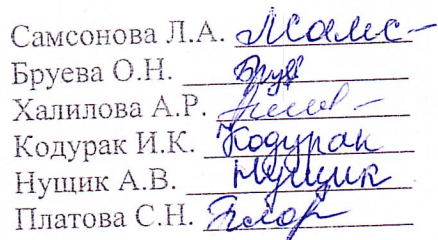 Самсонова Л.А.
Бруева О.Н.
Халилова А.Р.
Кодурак И.К. Кодурак
Нущик А.В. Нущик
Платова С.Н.